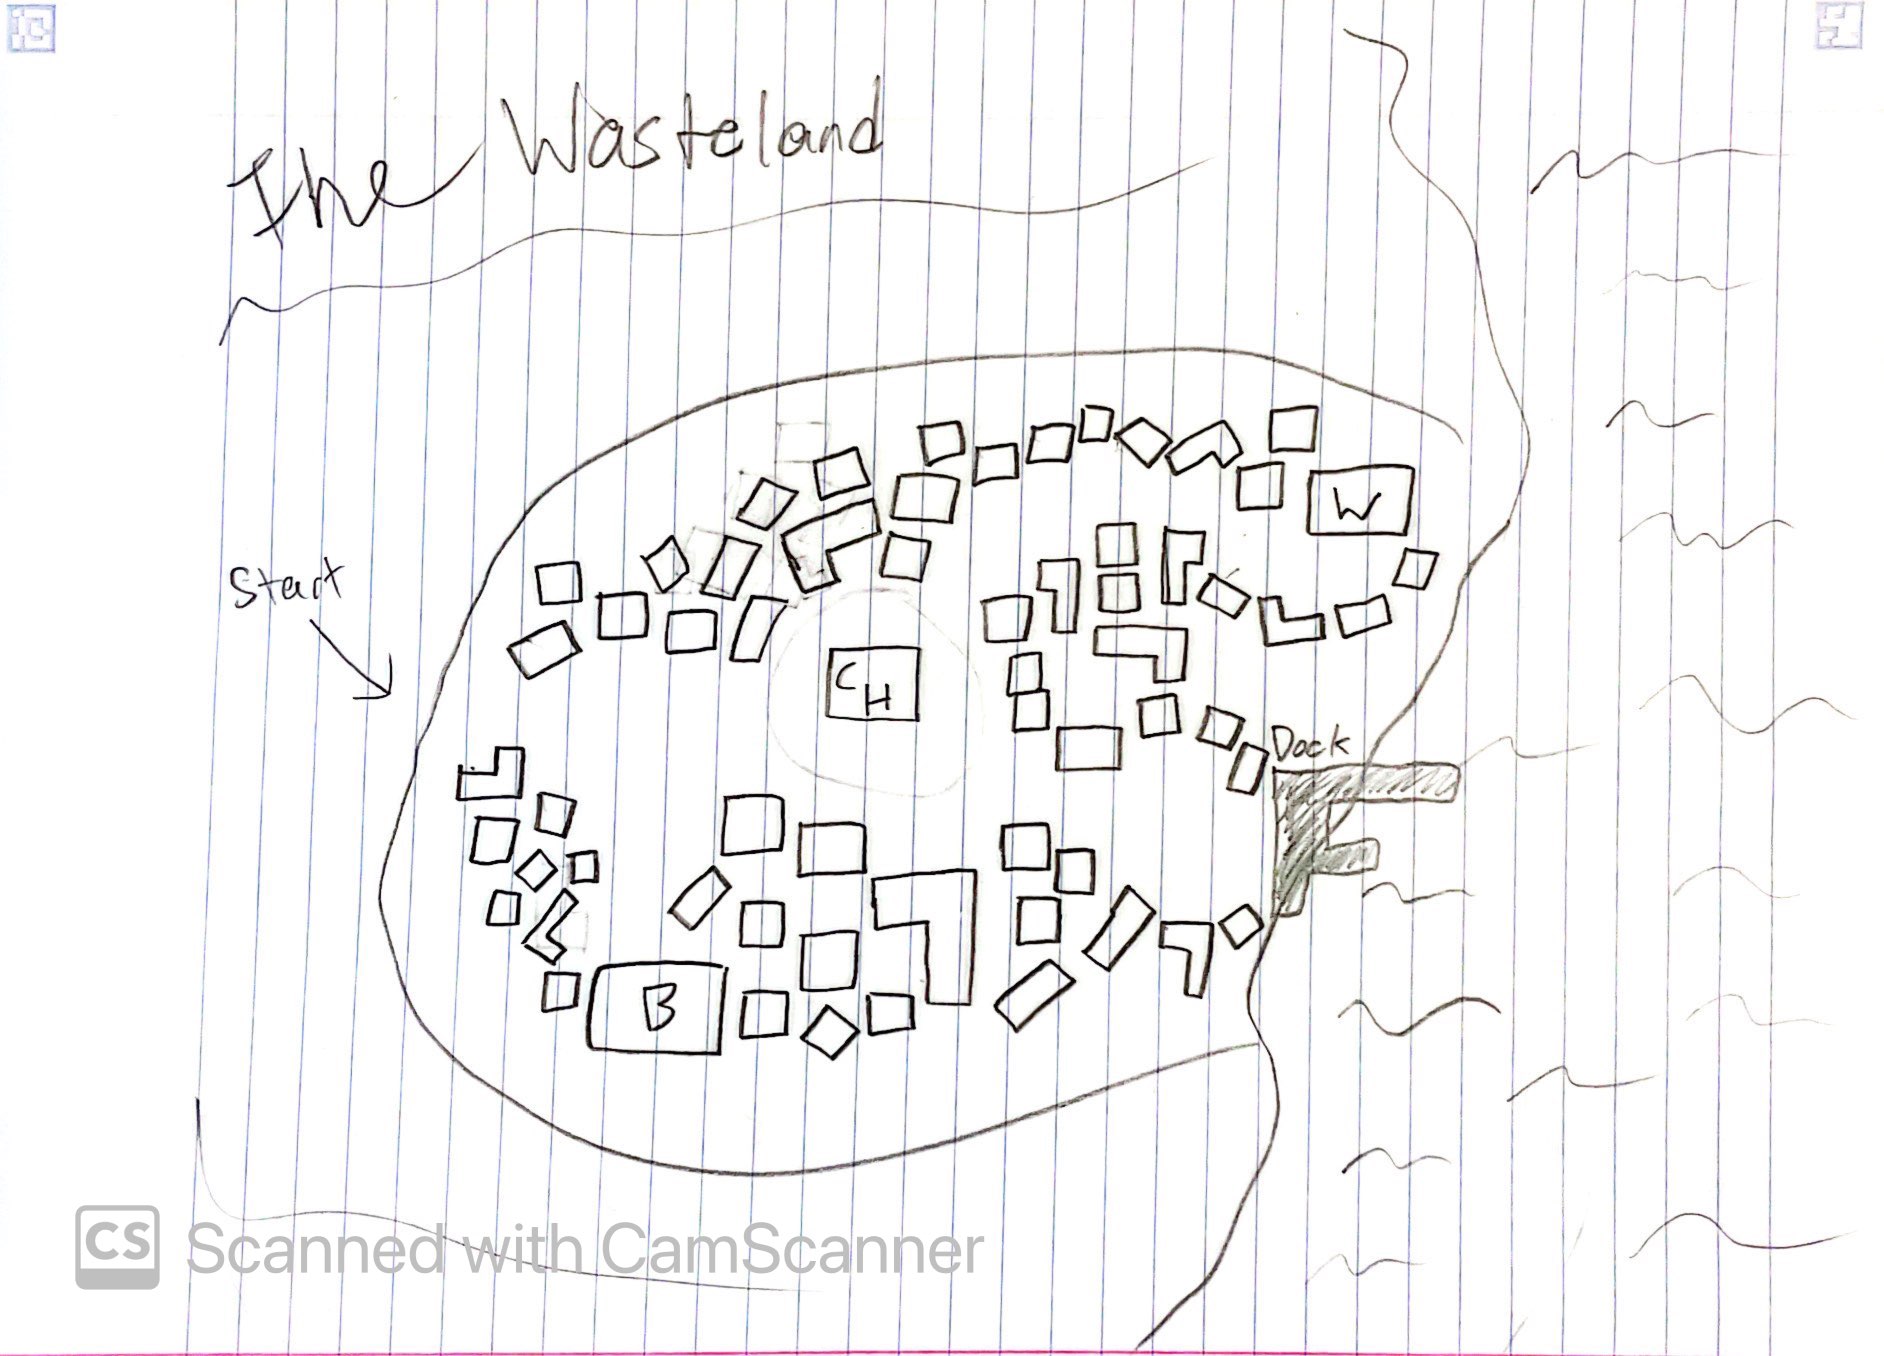 The Wasteland
Start
W
CH
Dock
B
CS Scanned with CamScanner